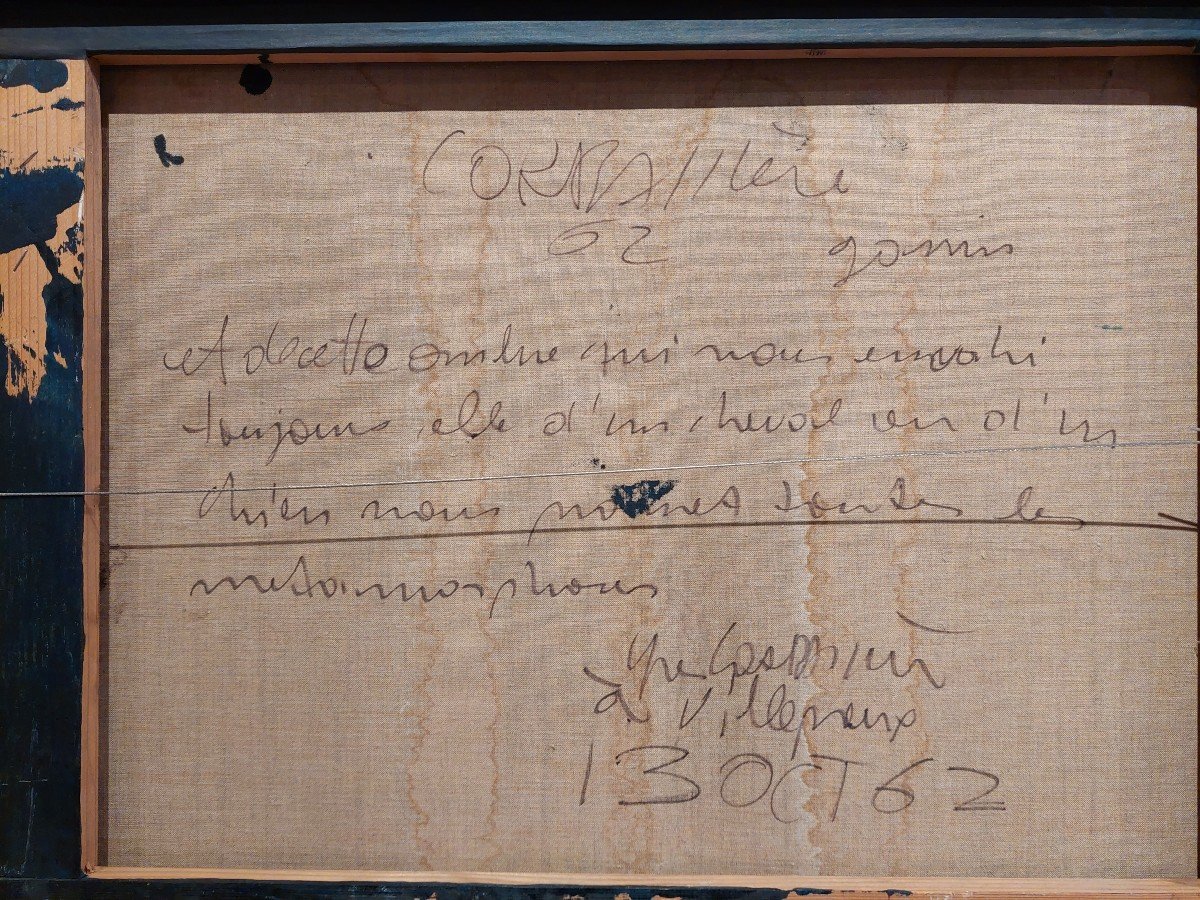 CORBAssière
62
et de cette ombre qui nous envahi
toujours, elle d'un cheval ou d'un
chien nous promet toutes les
metamorphoses
Yves Corbassière
à Villepreux
13 OCT 62